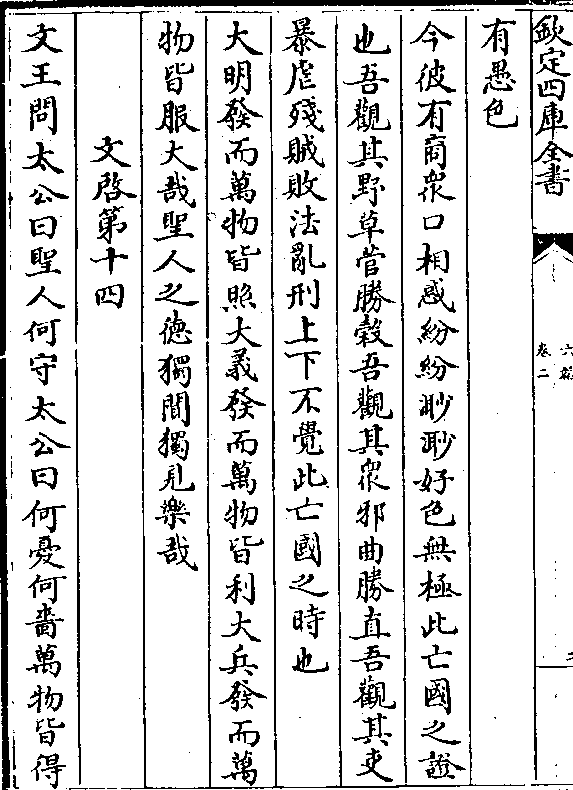 欽定四庫全書
六韜
卷二
有愚色
今彼有商衆口相惑紛紛眇眇好色無極此亡國之證
也吾觀其野草菅勝穀吾觀其衆邪曲勝直吾觀其吏
暴虐殘賊敗法亂刑上下不覺此亡國之時也
大明發而萬物皆照大義發而萬物皆利大兵發而萬
物皆服大哉聖人之德獨聞獨見樂哉
文啓第十四
文王問太公曰聖人何守太公曰何憂何嗇萬物皆得